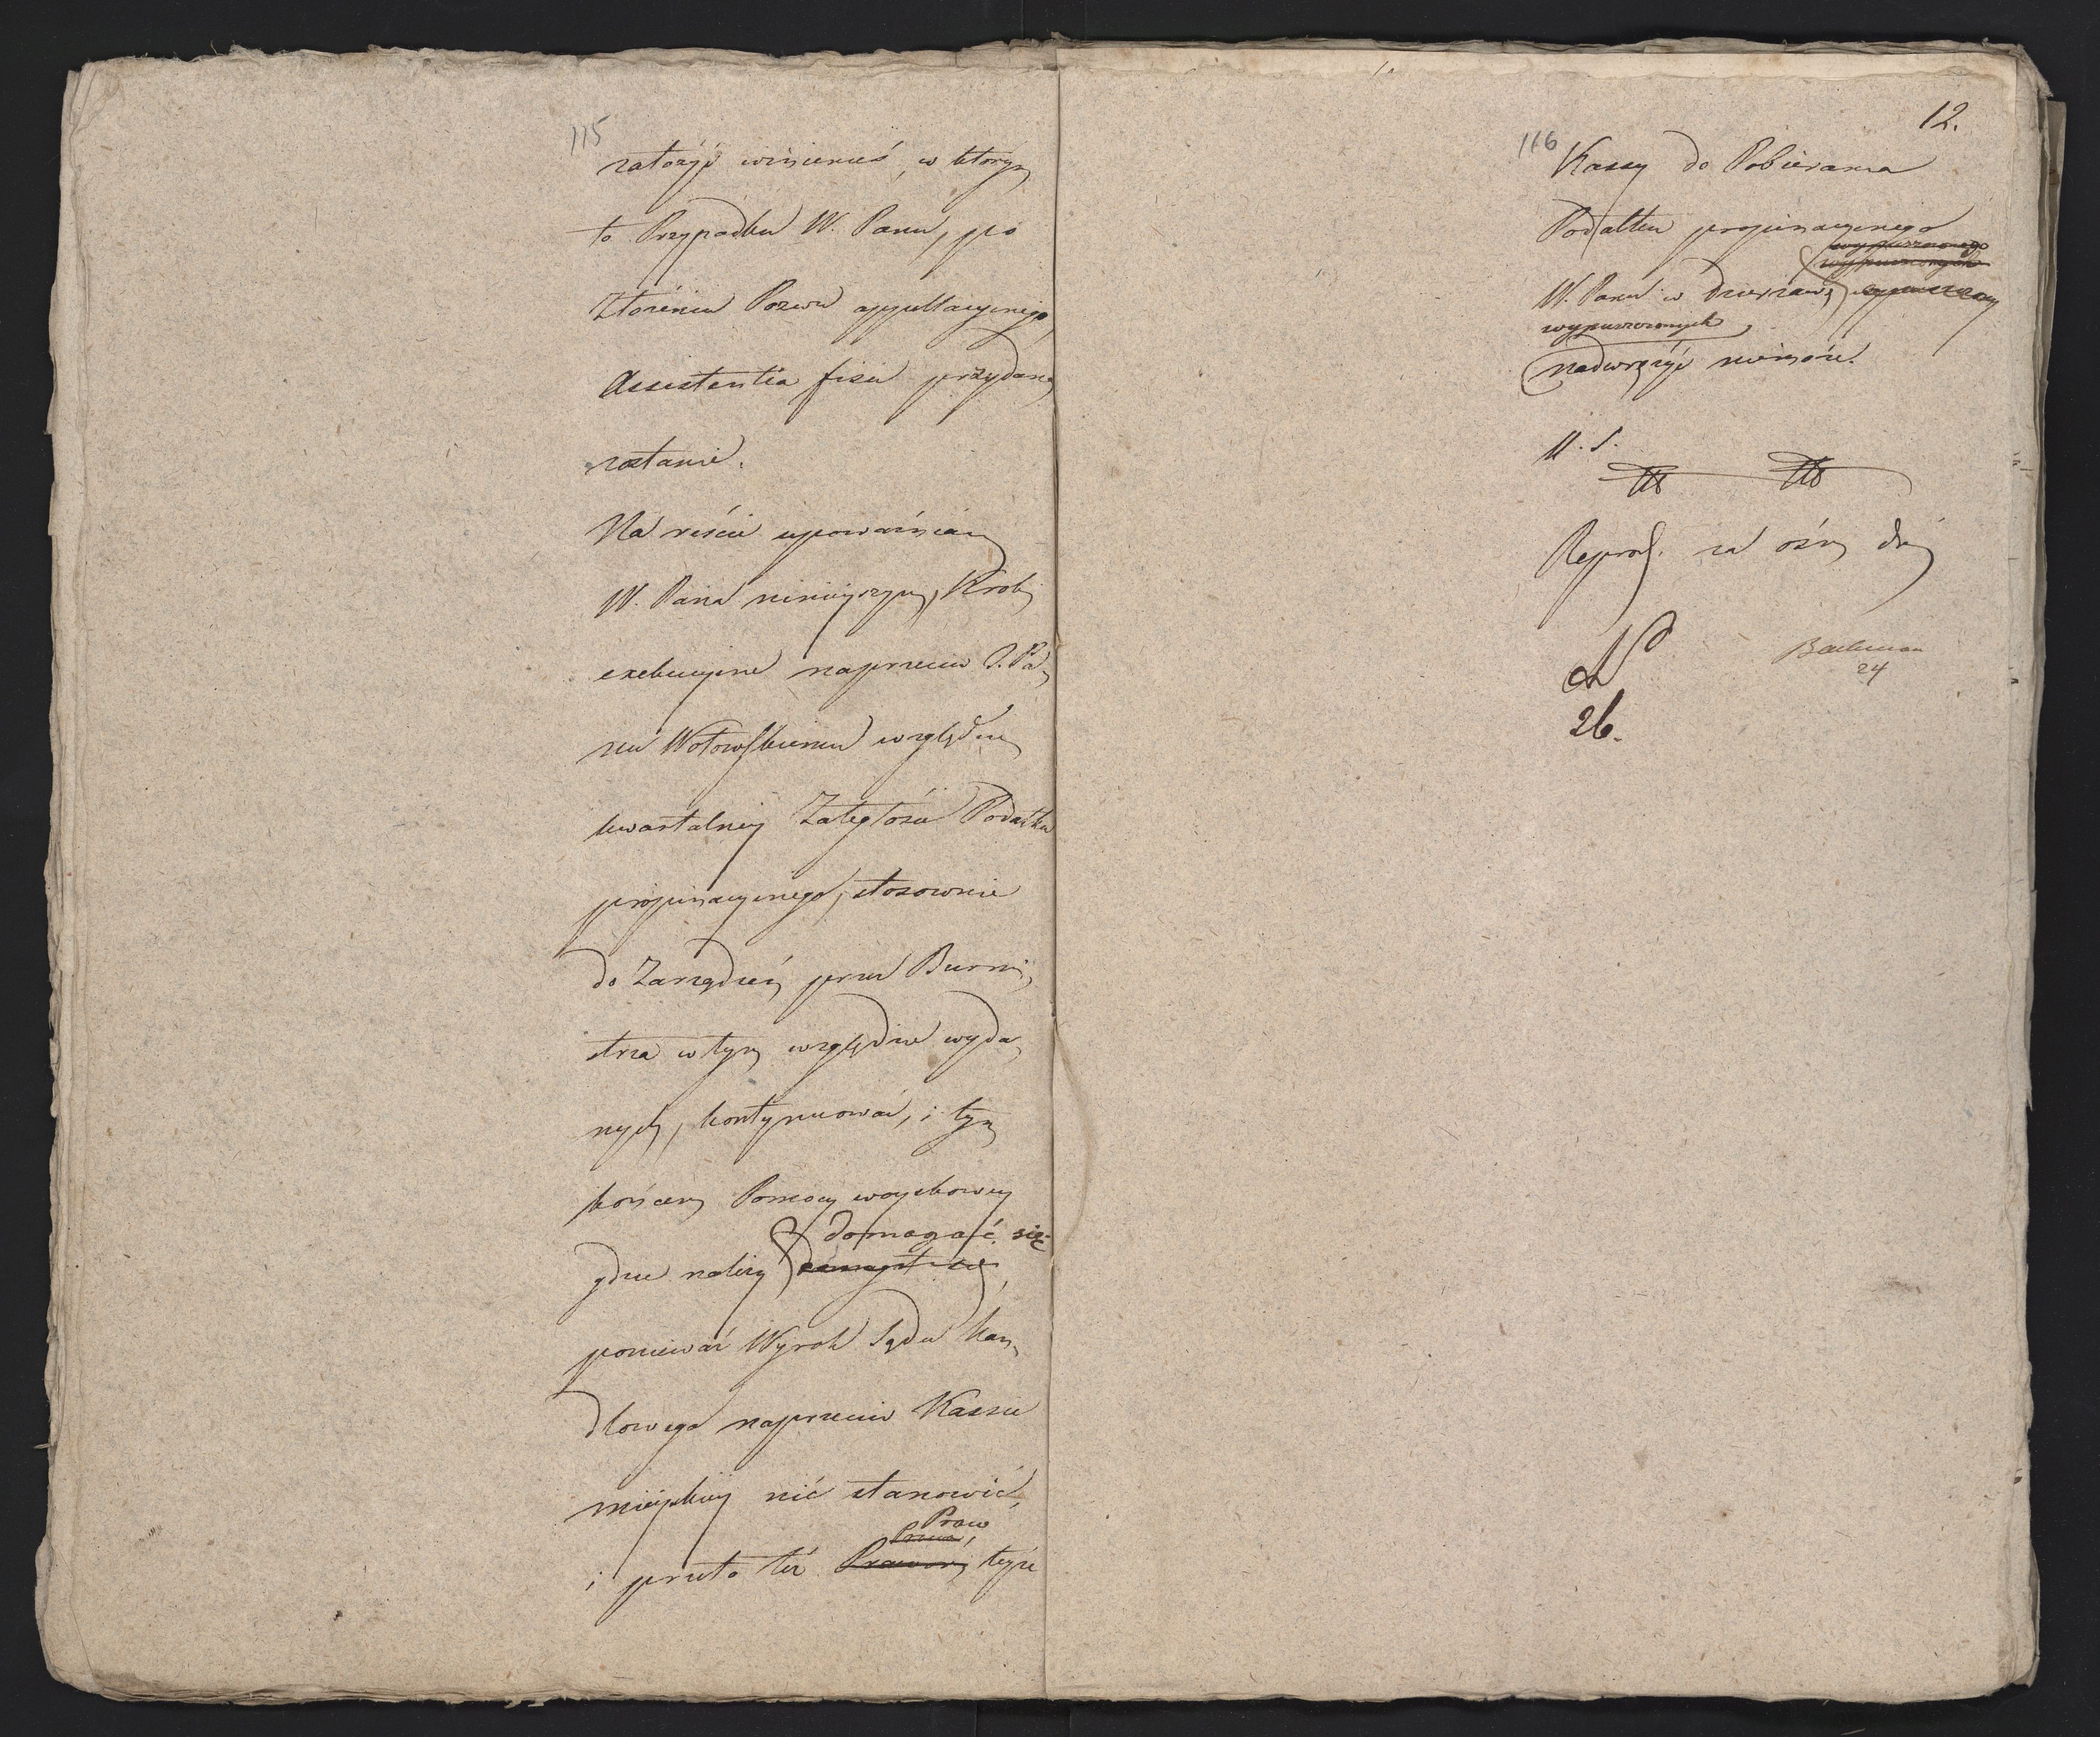 115
założyć winieneś, w którym
to Przypadku W. Panu, po
Złożeniu Pozwu appellacyinego
Assistentia fisci przydaną
zostanie.
Na reście upoważniam
W. Pana ninieyszym, Kroki
exekucyine naprzeciw S. Pa-
nu Wołowskiemu względem
kwartalney Zaległości Podatku
propinacyinego, stosownie
do Zarządzeń przez Burmi-
strza w tym względzie wyda-
nych, kontynuować, i tym
końcem Pomocy woyskowey
domagać się
gdzie należy
ponieważ Wyrok Sądu Han-
dlowego naprzeciw Kassie
mieyskiey nic stanowić,
Praw
i przeto też teyże
12.
116
Kassy do Pobierania
Podatku propinacyinego
wypuszczonego
wypuszczonych
W. Panu w Dzierzawę
wypuszczonych
nadwrężyć niemoże.
M. S.
Reprod. za ośm dni
24
26.